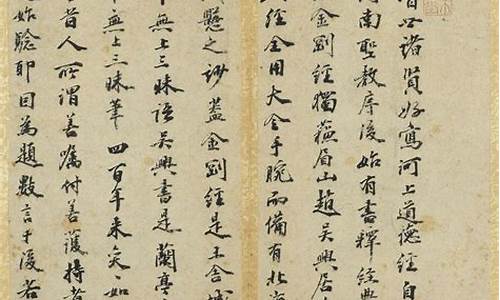 晉以諸賢好寫河上道德經自
河南聖教序後始有書釋經典
金剛經獨蘇眉山趙吳興居
經全用大令手腕而備有北
懸之謬蓋金剛經是不舍城
中無上三昧語吳興書是蘭亭
無上三昧筆四百年來矣々如
昔人所謂善囑付善護持者
始驗耶因為題數言于後若